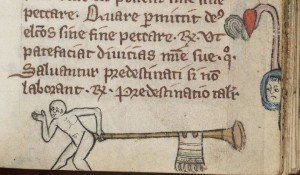 peccare. Quare permittit de⁹
elc̄os sine fine peccare. R̄. Ut
patefaciat divicias mīe sue. q̄
Salvantur predestinati si nō
laborant. R̄. Predestinatio tal̄